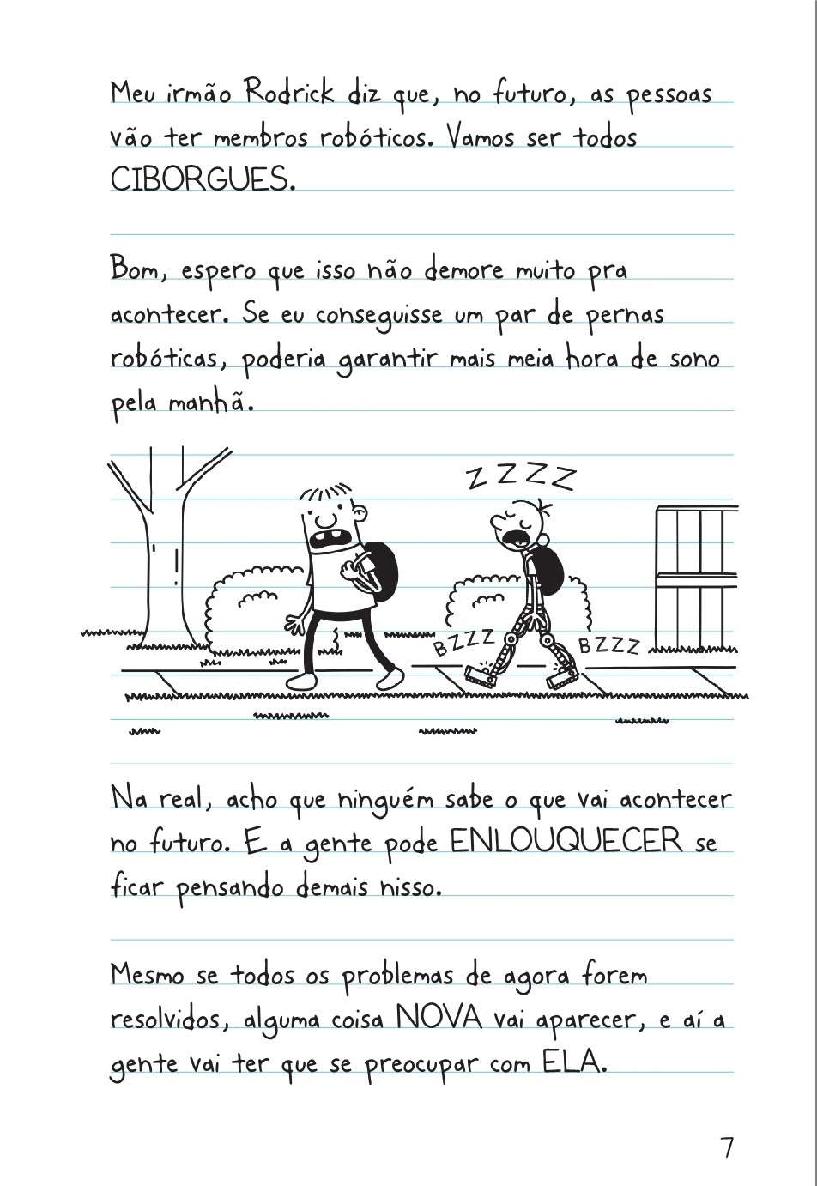 Meu irmão Rodrick diz que, no futuro, as pessoas
vão ter membros robóticos. Vamos ser todos
CIBORGUES.
Bom, espero que isso não demore muito pra
acontecer. Se eu conseguisse um par de pernas
robóticas, poderia garantir mais meia hora de sono
pela manhã.
ZZZZ
BZZZ BZZZ
Na real, acho que ninguém sabe o que vai acontecer
no futuro. E a gente pode ENLOUQUECER se
ficar pensando demais nisso.
Mesmo se todos os problemas de agora forem
resolvidos, alguma coisa NOVA vai aparecer, e aí a
gente vai ter que se preocupar com ELA.
7